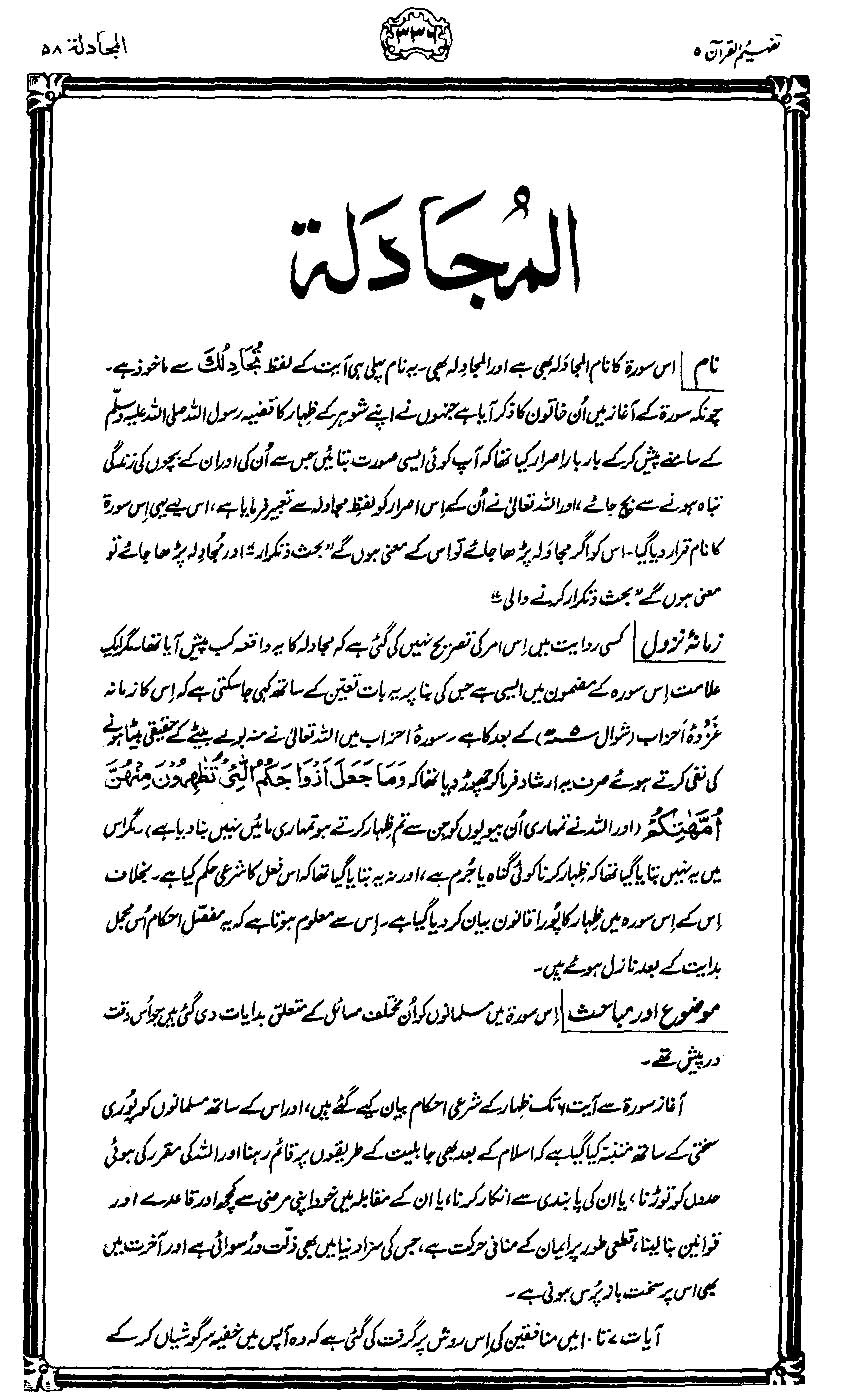 تفہیم القرآن ۵
۳۳۶
المجادلۃ ۵۸
المُجَادَلۃ
نام اس سورۃ کا نام المجادَلہ بھی ہے اور المجادِلہ بھی۔ یہ نام پہلی ہی آیت کے لفظ تُجَادِلُكَ سے ماخوذ ہے۔
چونکہ سورۃ کے آغاز میں اُن خاتون کا ذکر آیا ہے جنہوں نے اپنے شوہر کے ظِہار کا قضیہ رسول اللہ صلی اللہ علیہ وسلّم
کے سامنے پیش کر کے بار بار اصرار کیا تھا کہ آپ کوئی ایسی صورت بتائیں جس سے اُن کی اور ان کے بچوں کی زندگی
تباہ ہونے سے بچ جائے، اور اللہ تعالیٰ نے اُن کے اِس اصرار کو لفظِ مجادلہ سے تعبیر فرمایا ہے، اس لیے یہی اِس سورۃ
کا نام قرار دیا گیا۔ اس کو اگر مجادَلہ پڑھا جائے تو اس کے معنی ہوں گے ”بحث و تکرار“ اور مُجادِلہ پڑھا جائے تو
معنی ہوں گے ”بحث و تکرار کرنے والی“
زمانۂ نزول کسی روایت میں اِس امر کی تصریح نہیں کی گئی ہے کہ مجادلہ کا یہ واقعہ کب پیش آیا تھا۔ مگر ایک
علامت اِس سورہ کے مضمون میں ایسی ہے جس کی بنا پر یہ بات تعیّن کے ساتھ کہی جا سکتی ہے کہ اِس کا زمانہ
غزوۂ اَحزاب (شوال ۵ھ) کے بعد کا ہے۔ سورۂ احزاب میں اللہ تعالیٰ نے منہ بولے بیٹے کے حقیقی بیٹا ہونے
کی نفی کرتے ہوئے صرف یہ ارشاد فرما کر چھوڑ دیا تھا کہ وَمَا جَعَلَ اَزْوَاجَكُمُ الّٰئِیْ تُظٰهِرُوْنَ مِنْهُنَّ
اُمَّهٰتِكُمْ (اور اللہ نے تمہاری اُن بیویوں کو جن سے تم ظِہار کرتے ہو تمہاری مائیں نہیں بنا دیا ہے)۔ مگر اس
میں یہ نہیں بتایا گیا تھا کہ ظِہار کرنا کوئی گناہ یا جُرم ہے، اور نہ یہ بتایا گیا تھا کہ اس فعل کا شرعی حکم کیا ہے۔ بخلاف
اِس کے اِس سورہ میں ظِہار کا پُورا قانون بیان کر دیا گیا ہے۔ اِس سے معلوم ہوتا ہے کہ یہ مفصّل احکام اُس مجمل
ہدایت کے بعد نازل ہوئے ہیں۔
موضوع اور مباحث اِس سورۃ میں مسلمانوں کو اُن مختلف مسائل کے متعلق ہدایات دی گئی ہیں جو اُس وقت
درپیش تھے۔
آغازِ سورۃ سے آیت ۶ تک ظِہار کے شرعی احکام بیان کیے گئے ہیں، اور اس کے ساتھ مسلمانوں کو پُوری
سختی کے ساتھ متنبہ کیا گیا ہے کہ اسلام کے بعد بھی جاہلیت کے طریقوں پر قائم رہنا اور اللہ کی مقرر کی ہوئی
حدوں کو توڑنا، یا ان کی پابندی سے انکار کرنا، یا ان کے مقابلہ میں خود اپنی مرضی سے کچھ اور قاعدے اور
قوانین بنا لینا، قطعی طور پر ایمان کے منافی حرکت ہے، جس کی سزا دنیا میں بھی ذِلّت و رُسوائی ہے اور آخرت میں
بھی اس پر سخت باز پُرس ہونی ہے۔
آیات ۷ تا ۱۰ میں منافقین کی اِس روش پر گرفت کی گئی ہے کہ وہ آپس میں خفیہ سرگوشیاں کر کے